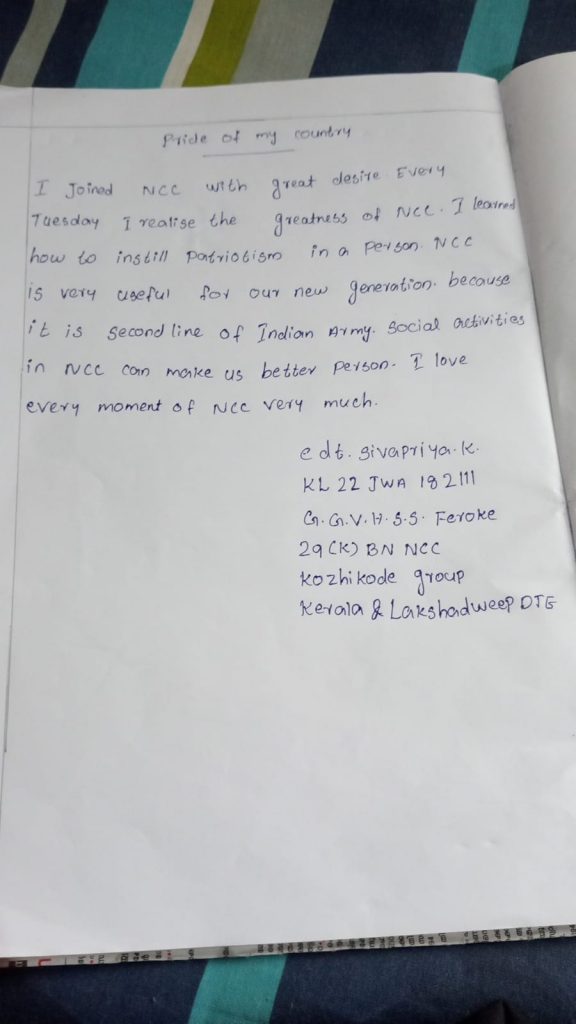 Pride of my country
I Joined NCC with great desire. Every
Tuesday I realise the greatness of NCC. I learned
how to instill Patriotism in a Person. NCC
is very useful for our new generation. because
it is second line of Indian Army. Social activities
in NCC can make us better person. I love
every moment of NCC very much.
cdt. sivapriya.K.
KL 22 JWA 182111
G.G.V.H.S.S. Feroke
29 (K) BN NCC
Kozhikode group
Kerala & Lakshadweep DTE